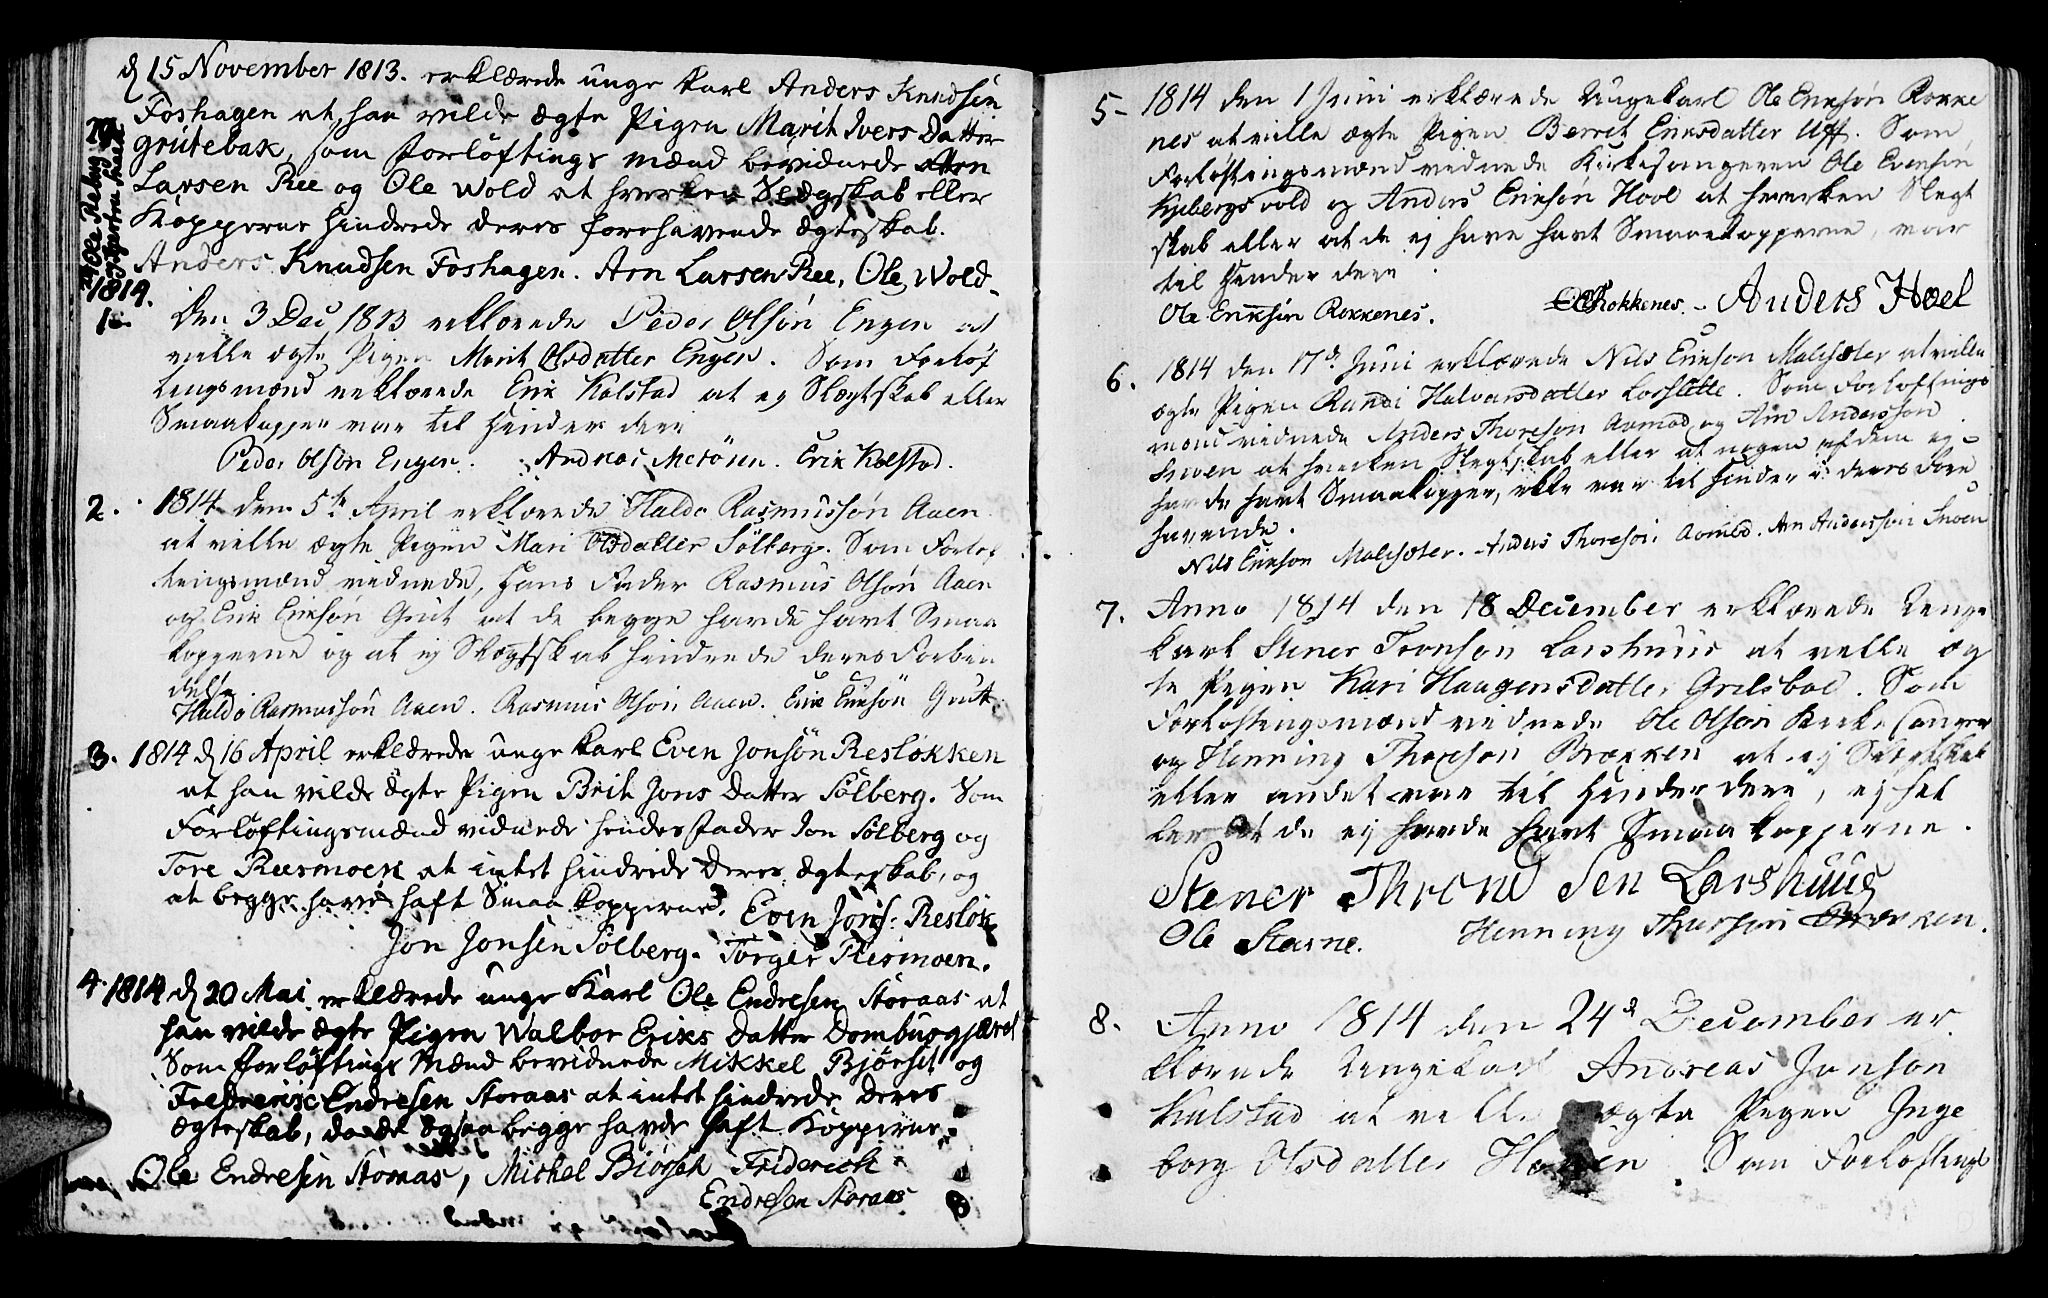 d 15 November 1813. erklærede unge Karl Anders Knudsen
Foshagen at han vilde ægte Pigen Marit Ivers Datter
Grütebak, som Forlöftings mænd bevidnede Arn
Larsen Ree og Ole Wold at hverken Slægskab eller
Kopperne hindrede deres forehavende Ægteskab.
Anders Knudsen Foshagen. Arn Larsen Ree, Ole Wold.
1814.
1. Den 3 Dec 1813 erklærede Peder Olsøn Engen at
ville ægte Pigen Marit Olsdatter Engen. Som Forløf
tingsmænd erklærede Erik Kolstad at ej Slægtskab eller
Smaakopper var til Hinder deri
Peder Olsøn Engen. Andreas Erik Kolstad.
2. 1814 den 5te April erklærede Haldo Rasmussøn Aaen
at ville ægte Pigen Mari Olsdatter Sølberg. Som Forløf
tingsmænd vidnede, Hans Fader Rasmus Olsøn Aaen
og Erik Eriksøn Grut at de begge havde havt Smaa
kopperne og at ej Slægtskab hindrede deres Forbin
delse
Haldo Rasmussøn Aaen. Rasmus Olsøn Aaen. Erik Eriksøn Grutt
3. 1814 d 16 April erklærede unge Karl Even Jonsön Resløkken
at han vilde ægte Pigen Brit Jons Datter Sölberg. Som
Forlöftingsmænd vidnede hendes Fader Jon Sölberg og
Tore Riismoen at intet hindrede Deres Ægteskab, og
at begge havde haft Smaa Kopperne. Even Jons: Resløk
Jon Jonsen Sølberg. Torger Riismoen.
4. 1814 d 20 Mai erklærede unge Karl Ole Endresen Storaas at
han vilde ægte Pigen Walbor Eriks Datter Dombusgjæret
Som Forlöftings Mænd bevidnede Mikkel Bjørset og
Frederik Endresen Storaas at intet hindrede Deres
Ægteskab, da de ogsaa begge havde haft Kopperne
Ole Endresen Storaas, Michel Biørset Friderich
Endresen Storaas
5- 1814 den 1 Juni erklærede Ungekarl Ole Eriksøn Rokke
nes at ville ægte Pigen Berret Eriksdatter Uff. Som
Forløftingsmænd vidnede Kirkesangeren Ole Evensøn
Kjebergsvold og Anders Eriksøn Hool at hverken Slegt
skab eller at de ej have havt Smaaekopperne, var
til Hinder derri
Ole Eriksøn Rokkenes. Rokkenes. - Anders Hoel
6. 1814 den 17de Juni erklærede Nils Erikson Malisæter at ville
ægte Pigen Randi Halvorsdatter Lorslette. Som Forløftings
mænd vidnede Anders Thoreson Aamod og Arn Andersson
Snoen at hverken Slegtskab eller at nogen af dem ej
havde havt Smaakopper, ikke var til Hinder i deres Fore
havende.
Nils Erikson Malisæter. Anders Thoresøn Aamod. Arn Andersson Snoen
7. Anno 1814 den 18 December erklærede Unge
karl Stener Tronson Larshuus at ville æg
te Pigen Kari Haagensdatter Grilsbod. Som
Forløftingsmænd vidnede Ole Olsøn Kirkesanger
og Henning Thoreson Brækken at ej Slegtskab
eller andet var til Hinder derr, ej hel
ler at de ej havde havt Smaakopperne.
Stener Thrond Sen Larshuus
Ole Starne. Henning Thoresson Brækken.
8. Anno 1814 den 24de December er
klærede Ungekarl Andreas Jonson
Kulstad at ville ægte Pigen Inge
borg Olsdatter Som Forløftings